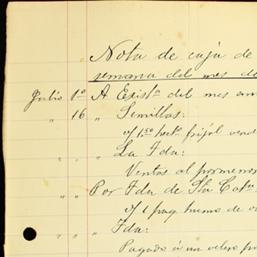 Nota de caja de
semana del mes de
Julio 1º A Existª del mes an
" 16 " Semillas:
c/ 150 hect. frijol vend
" " " La Fda:
Ventas al pormenor
" " Por Fda de Sta Cata
c/ 1 pag
" " " Fda:
Pagado á un